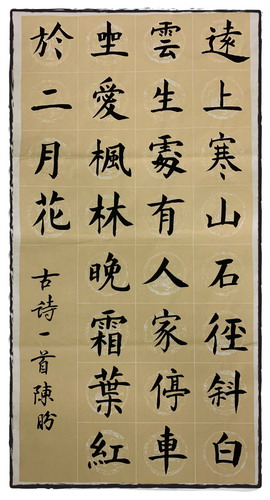 遠上寒山石徑斜白
雲生處有人家停車
坐愛楓林晚霜葉紅
於二月花
古诗一首陳盼